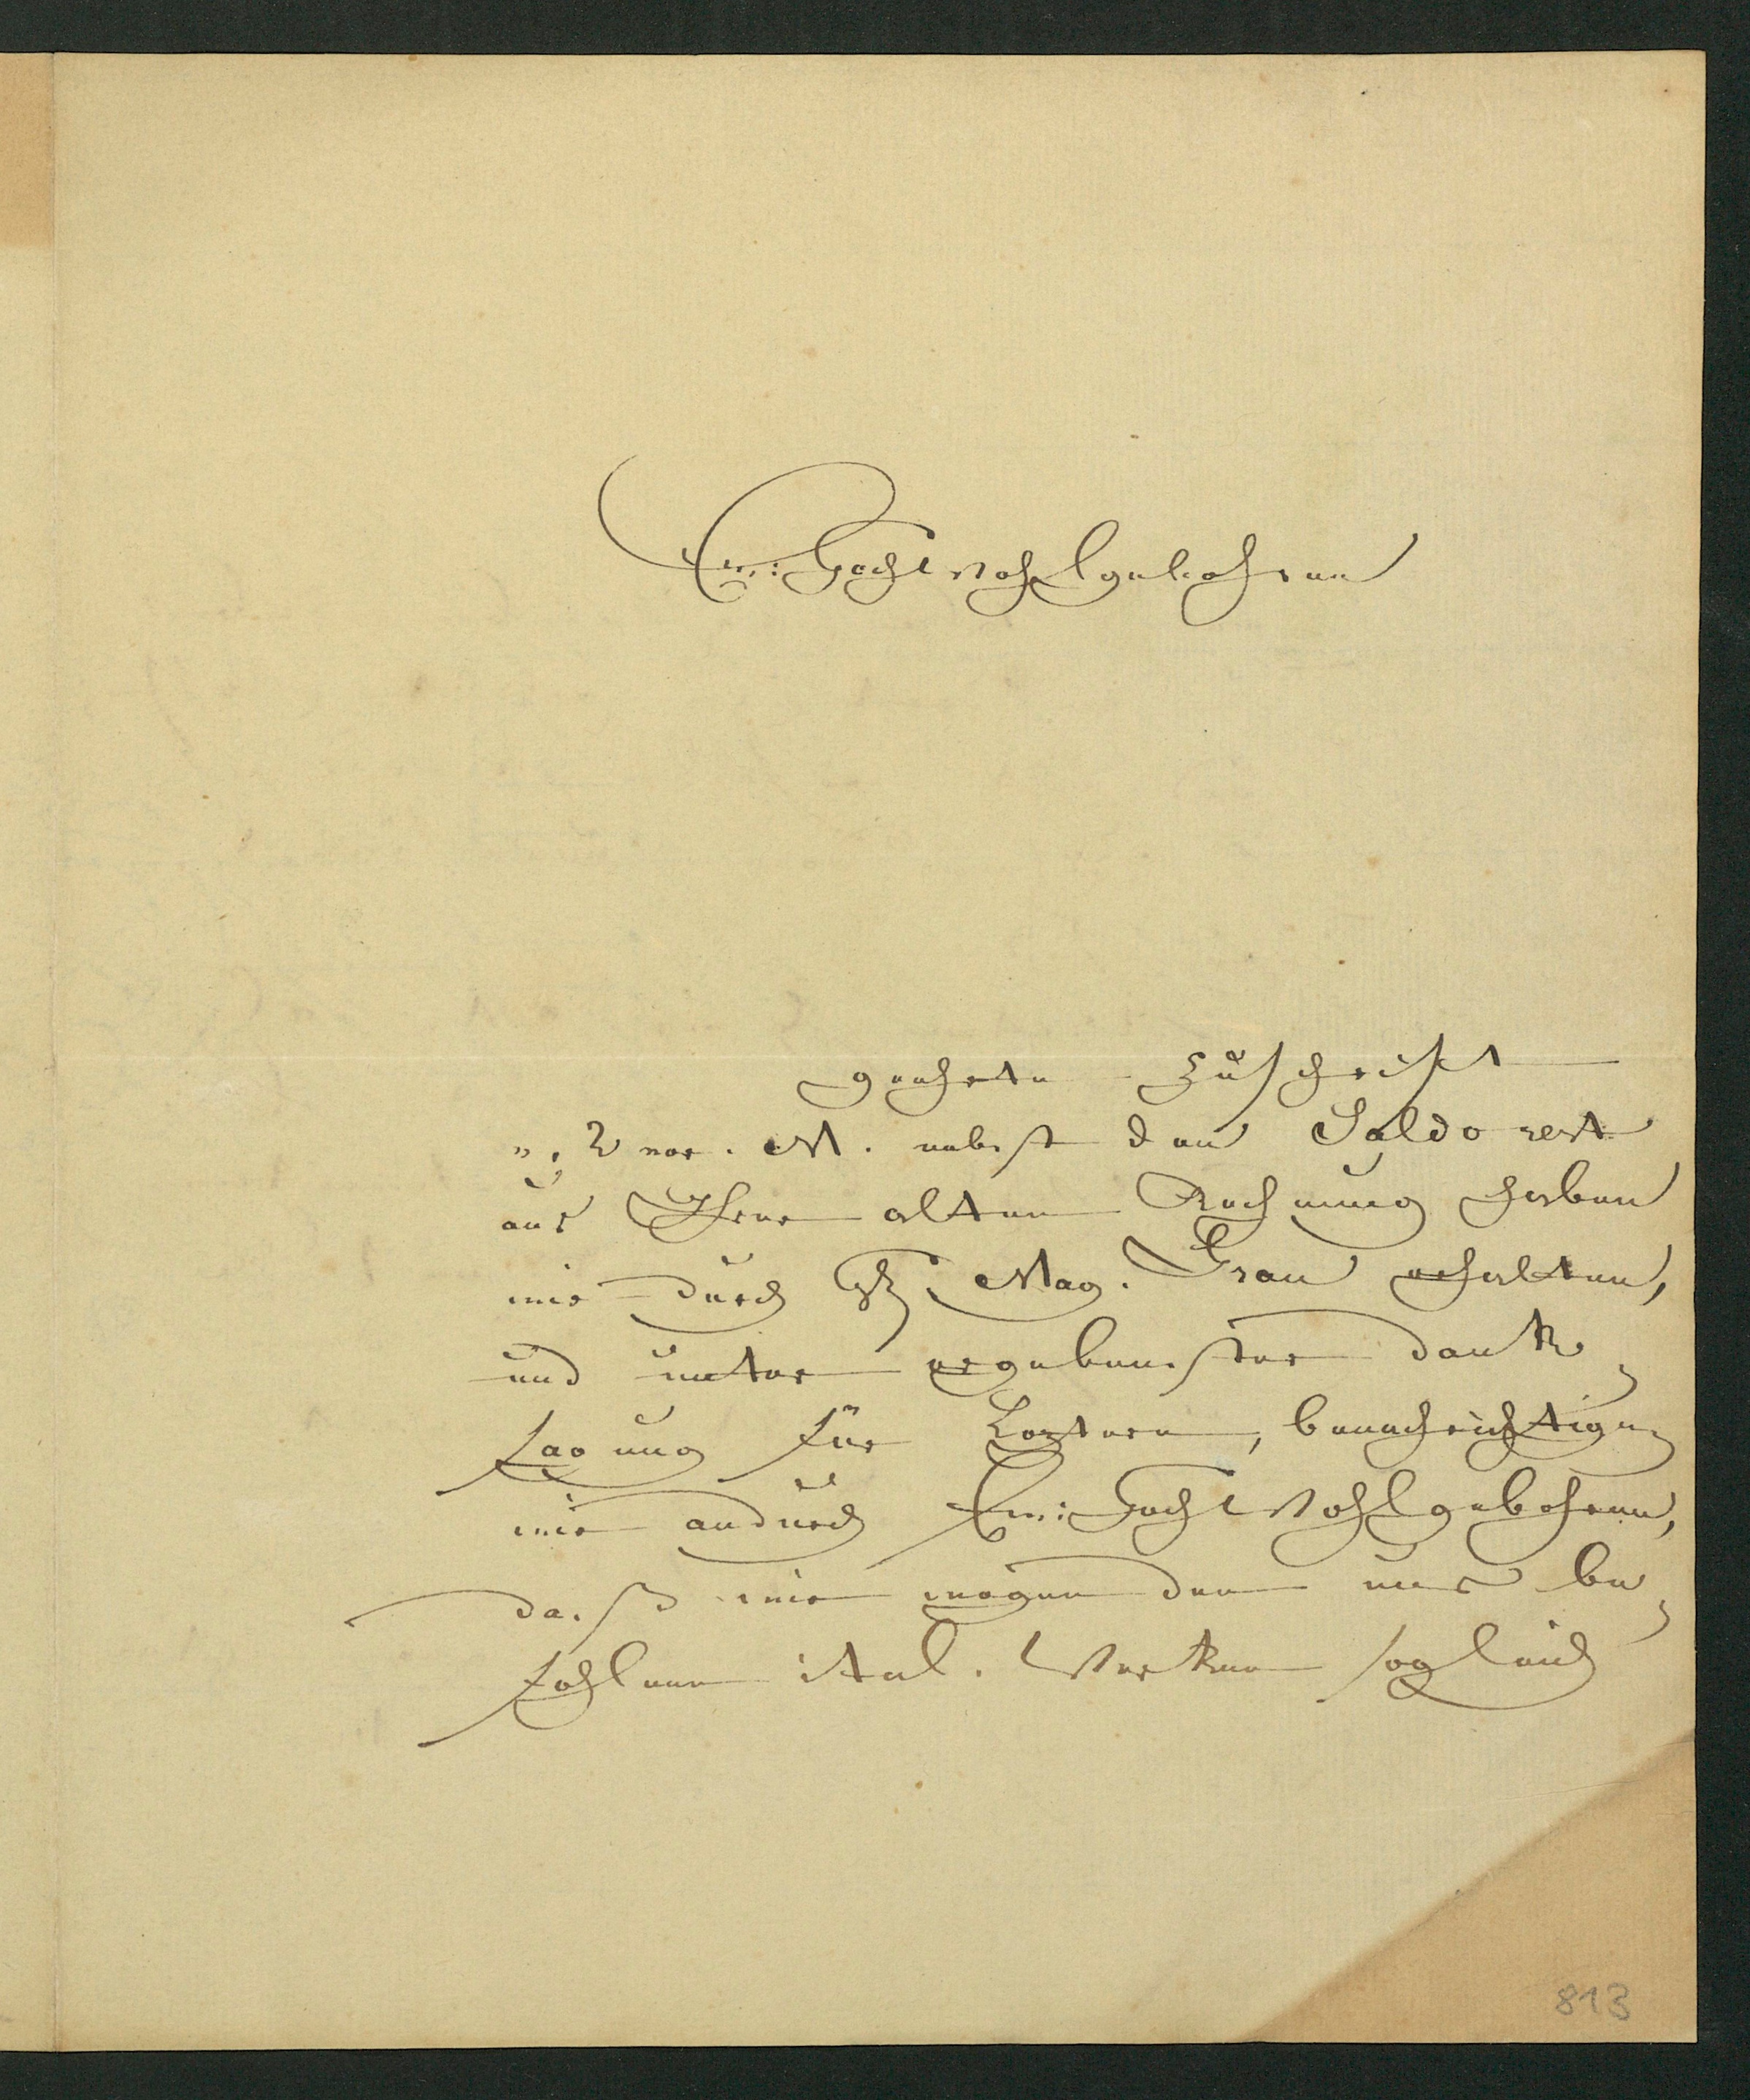 Ew: Hochwohlgebohren
geehrte Zuschrift
v. 2 vor. M. nebst dem Saldo rest
aus Ihrer alten Rechnung haben
wir durch H: Mag. Grau erhalten,
und unter ergebenster Dank-
sagung für Leztern, benachrichtigen
wir andurch Ew: Hochwohlgebohren,
daß wir wegen der uns be-
fohlnen ital. Werken sogleich
813